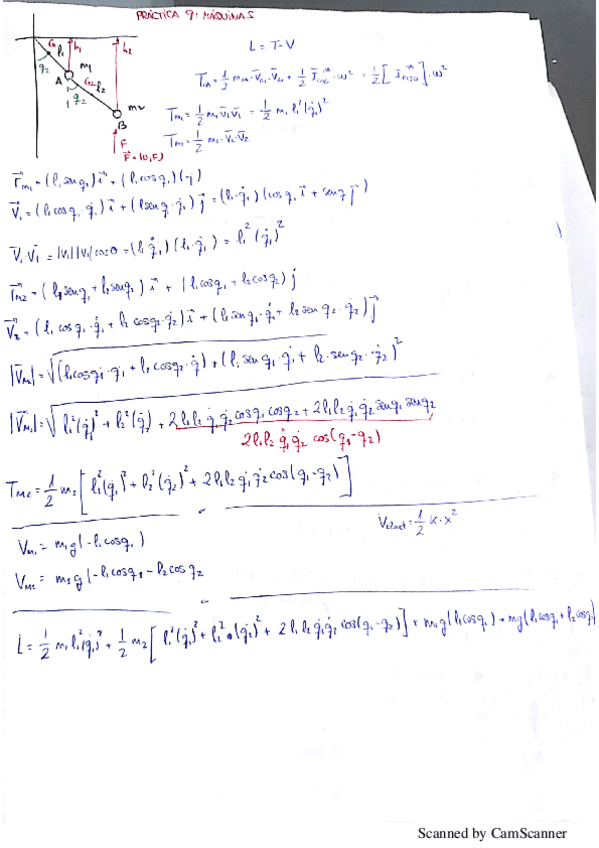 PRÁCTICA 9: MÁQUINAS
L = T - V
G₁ l₁ h₁ h₂
q₂ A m₁
G₂ l₂ q₂ m₂
B
F
F̄ = (0, F)
T_m₁ = 1/2 m₁ v̄₁ v̄₁ = 1/2 m₁ l₁² (q̇₁)²
T_m₂ = 1/2 m₂ · v̄₂ · v̄₂
r̄_m₁ = (l₁ sen q₁) i + (l₁ cos q₁)(-j)
V̄₁ = (l₁ cos q₁ · q̇₁) i + (l₁ sen q₁ · q̇₁) j = (l₁ · q̇₁)(cos q₁ i + sen q j)
V̄₁ · V̄₁ = |V₁| |V₁| cos θ = (l₁ q̇₁)(l₁ · q̇₁) = l₁² (q̇₁)²
r̄_m₂ = (l₁ sen q₁ + l₂ sen q₂) i + (l₁ cos q₁ + l₂ cos q₂) j
V̄₂ = (l₁ cos q₁ · q̇₁ + l₂ cos q₂ · q̇₂) i + (l₁ sen q₁ · q̇₁ + l₂ sen q₂ · q̇₂) j
|V̄_m₂| = √(l₁ cos q₁ · q̇₁ + l₂ cos q₂ · q̇) + (l₁ sen q₁ · q̇₁ + l₂ · sen q₂ · q̇₂)²
|V̄_m₂| = √l₁² (q̇₁)² + l₂² (q̇₂) + 2 l₁ l₂ q̇₁ q̇₂ cos q₁ cos q₂ + 2 l₁ l₂ q̇₁ q̇₂ sen q₁ sen q₂
2 l₁ l₂ q̇₁ q̇₂ cos (q₁ - q₂)
T_m₂ = 1/2 m₂ [l₁² (q̇₁)² + l₂² (q̇₂)² + 2 l₁ l₂ q̇₁ q̇₂ cos (q₁ - q₂)]
V_elast = 1/2 K · x²
V_m₁ = m₁ g (-l₁ cos q₁)
V_m₂ = m₂ g (-l₁ cos q₁ - l₂ cos q₂
L = 1/2 m₁ l₁² (q̇₁)² + 1/2 m₂ [l₁² (q̇₁)² + l₂² (q̇₂)² + 2 l₁ l₂ q̇₁ q̇₂ cos (q₁ - q₂)] + m₁ g (l₁ cos q₁) + m g (l₁ cos q₁ + l₂ cos q
Scanned by CamScanner